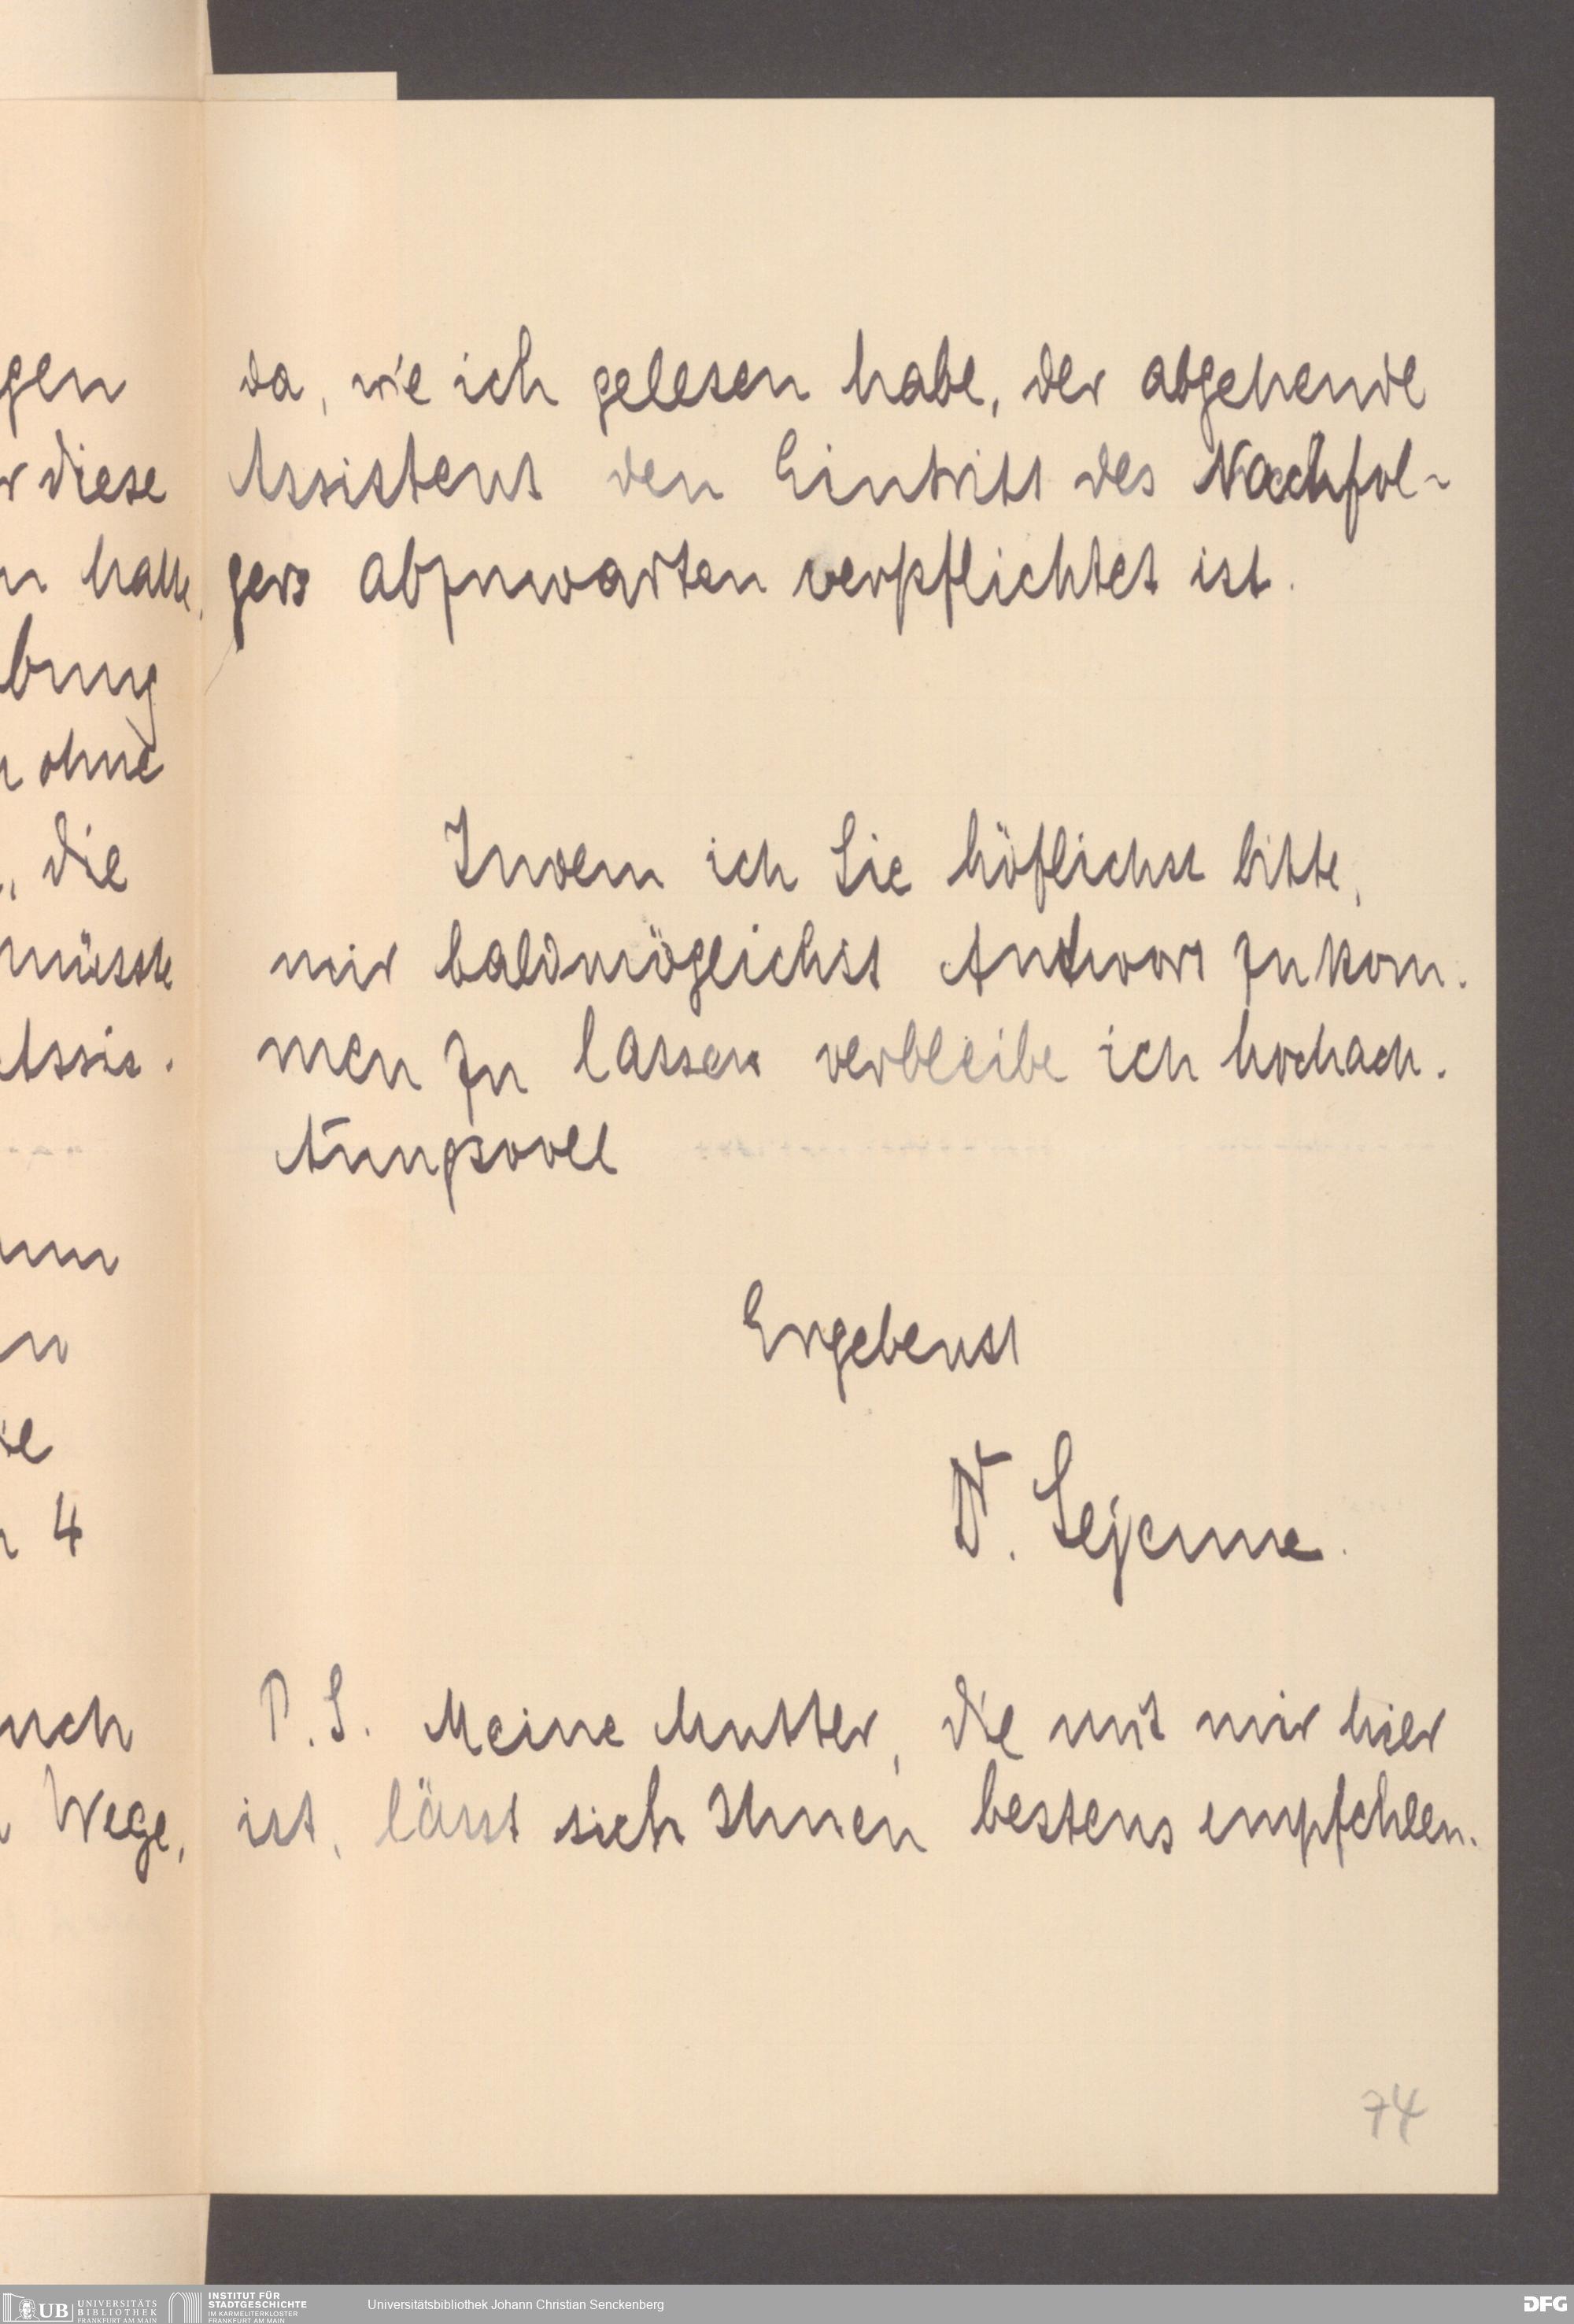 gen
r diese
n hatte,
bung
n ohne
, die
müsste
Assis.
um
n
ie
n 4
uch
n Wege,
da, wie ich gelesen habe, der abgehende
Assistent den Eintritt des Nachfol-
gers abzuwarten verpflichtet ist.
Indem ich Sie höflichst bitte,
mir baldmöglichst Antwort zukom.
men zu lassen verbleibe ich hochach.
tungsvoll
Ergebenst
Dr. Lejeune.
P.S. Meine Mutter, die mit mir hier
ist, lässt sich Ihnen bestens empfehlen.
74
UB UNIVERSITÄTS
BIBLIOTHEK
FRANKFURT AM MAIN
INSTITUT FÜR
STADTGESCHICHTE
IM KARMELITERKLOSTER
FRANKFURT AM MAIN
Universitätsbibliothek Johann Christian Senckenberg
DFG